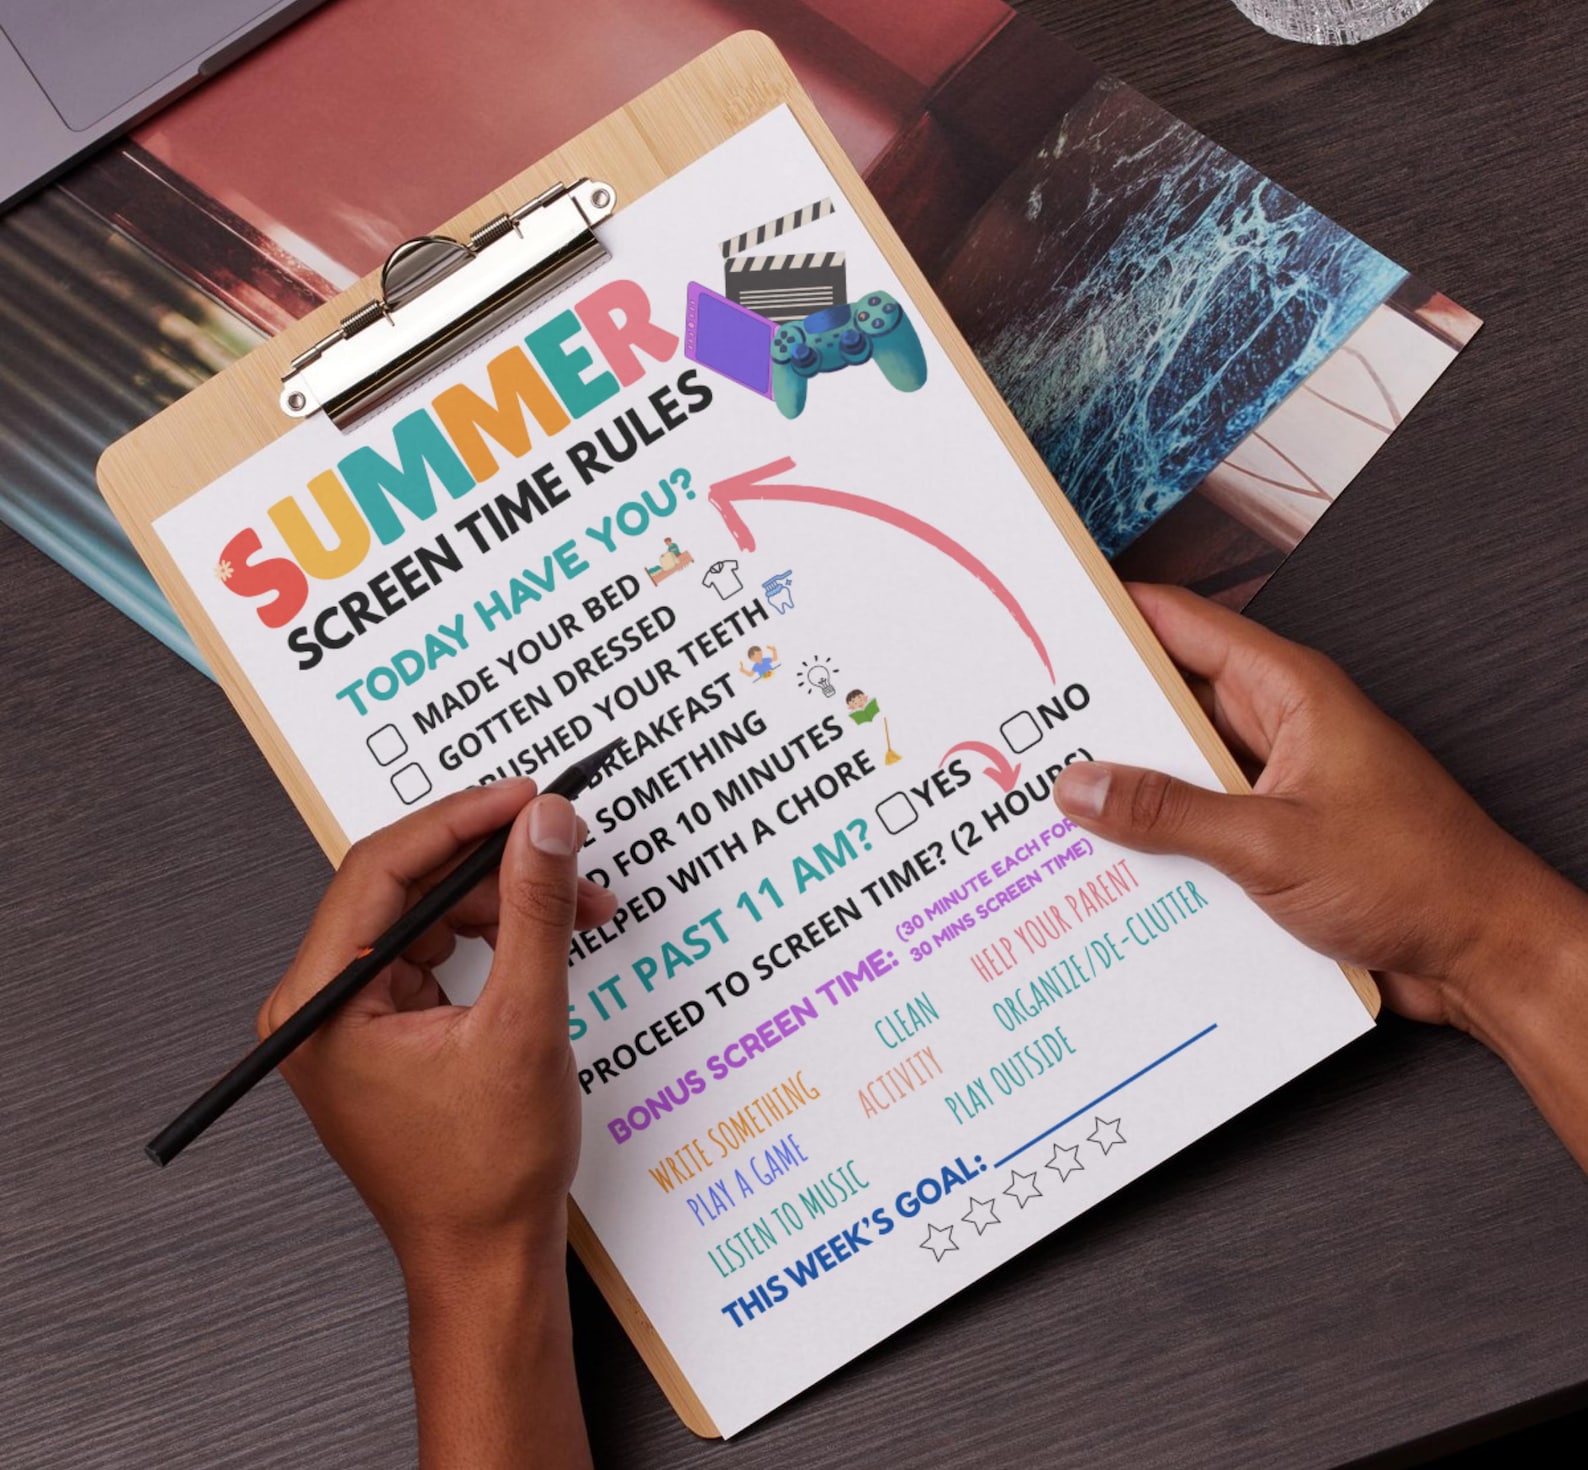 SUMMER
SCREEN TIME RULES
TODAY HAVE YOU?
MADE YOUR BED
GOTTEN DRESSED
BRUSHED YOUR TEETH
BREAKFAST
SOMETHING
FOR 10 MINUTES
HELPED WITH A CHORE
IT PAST 11 AM? YES NO
PROCEED TO SCREEN TIME? (2 HOURS)
BONUS SCREEN TIME: (30 MINUTE EACH FOR
30 MINS SCREEN TIME)
WRITE SOMETHING CLEAN HELP YOUR PARENT
PLAY A GAME ACTIVITY ORGANIZE/DE-CLUTTER
LISTEN TO MUSIC PLAY OUTSIDE
THIS WEEK'S GOAL: